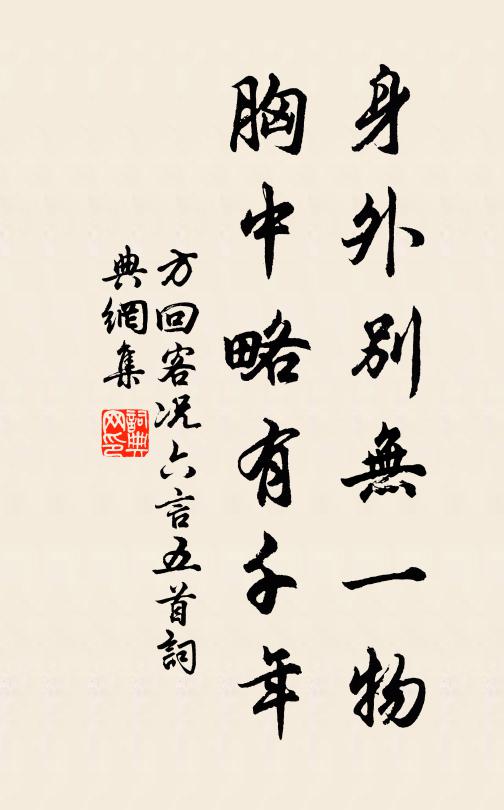 身外別無一物
胸中略有千年
方回客况六言五首詞
典網集
詞典網印